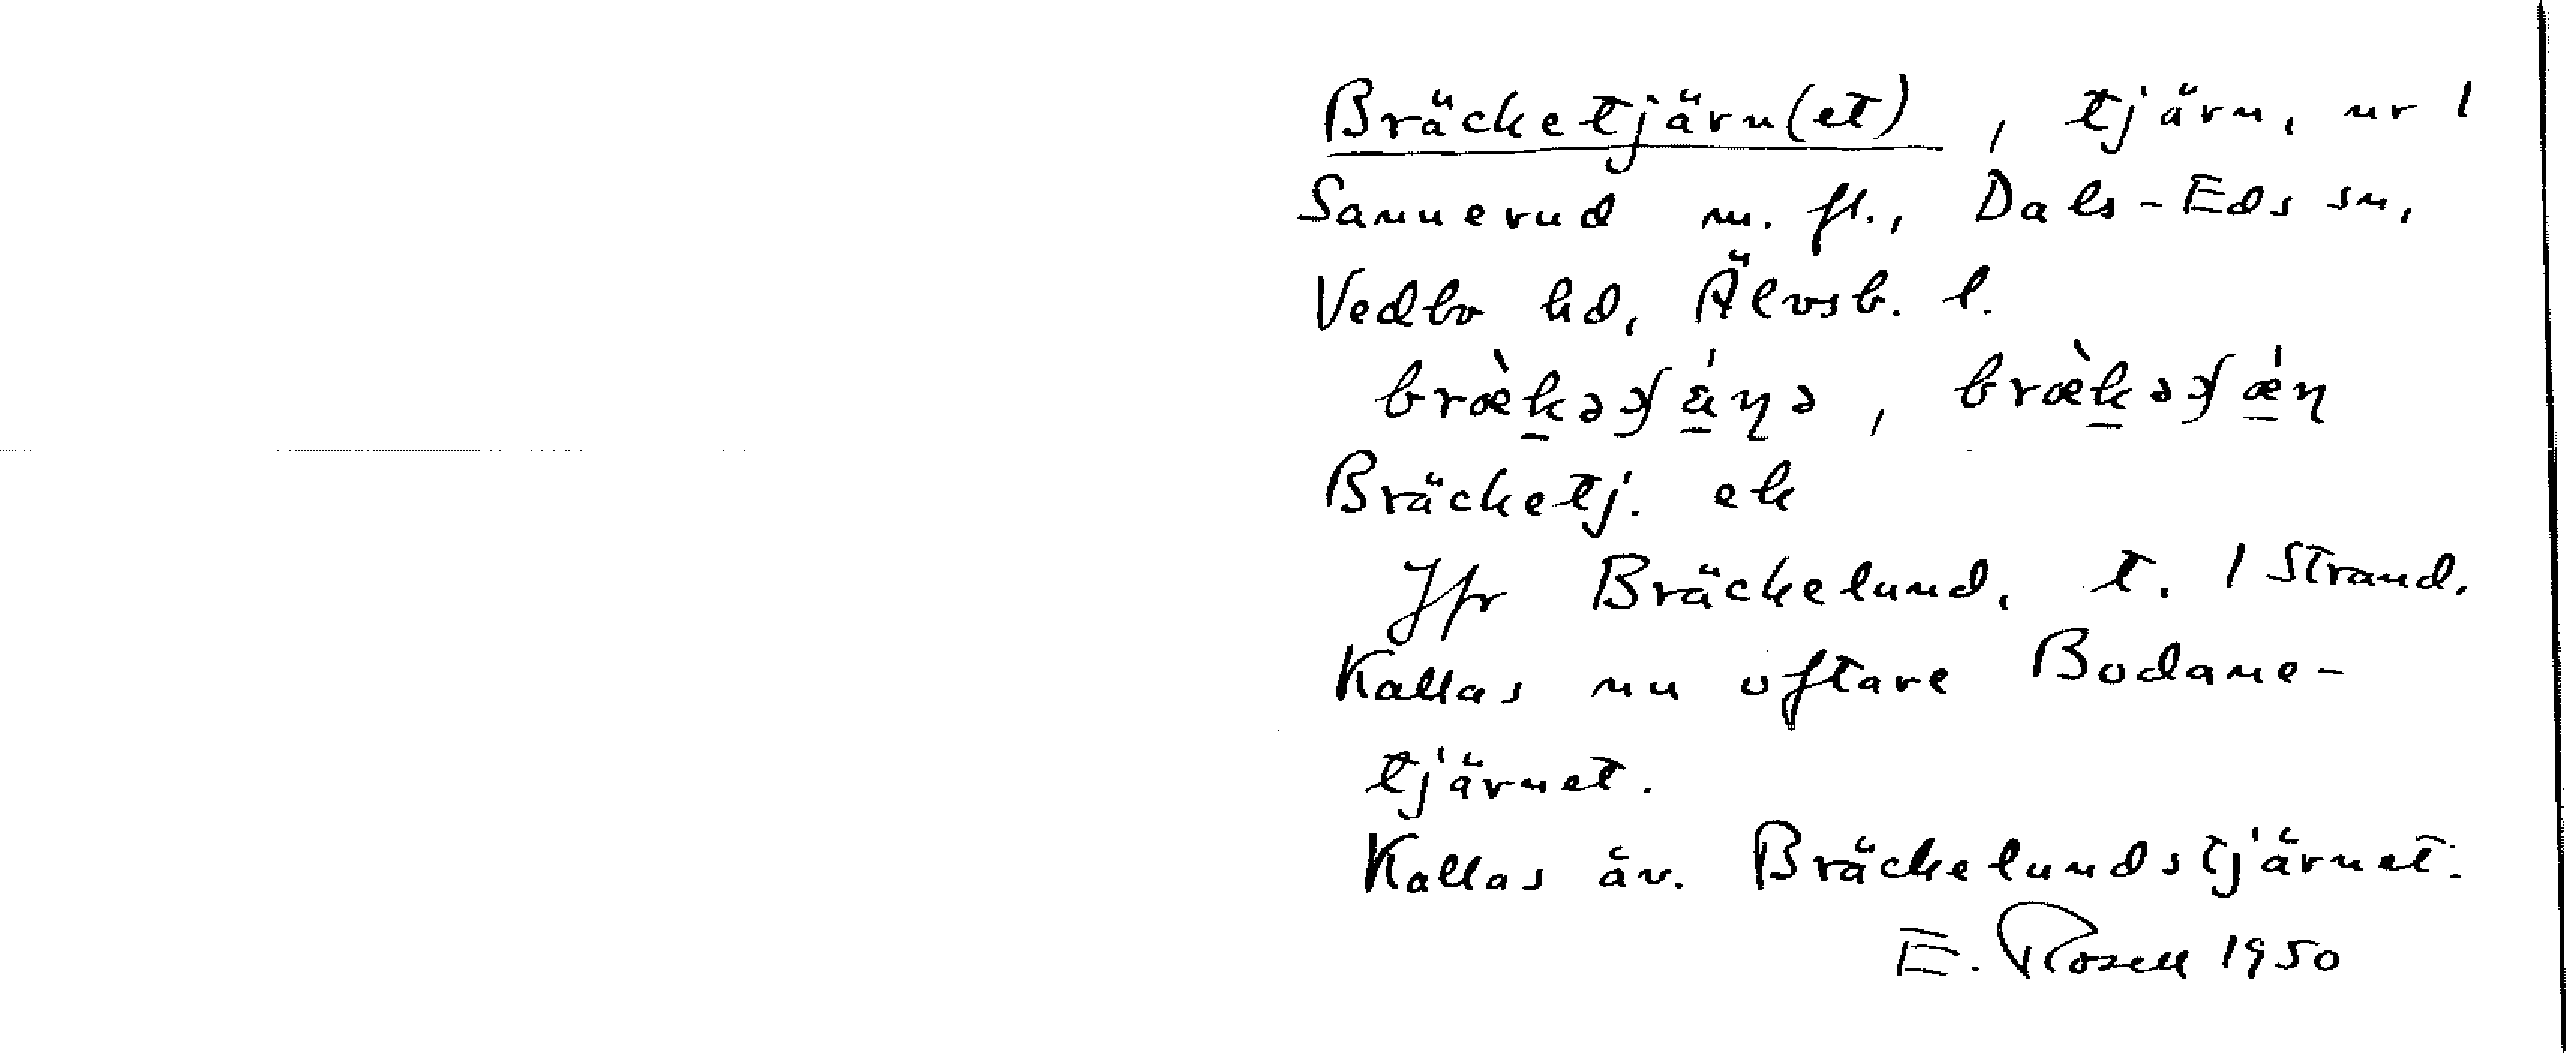 Bräcketjärn(et), tjärn, nr 1
Sannerud m. fl., Dals-Eds sn,
Vedbo hd, Älvsb. l.
Bräcketj. ek
Jfr Bräckelund, t. 1 Strand.
Kallas nu oftare Bodane-
tjärnet.
Kallas äv. Bräckelundstjärnet.
E. Rosell 1950